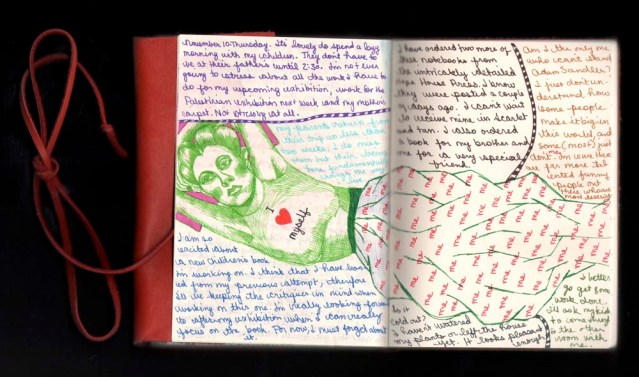 November 10. Thursday. It's lovely to spend a lazy
morning with my children. They don't have to
be at their father's until 2:30. I'm not even
going to stress about all the work I have to
do for my upcoming exhibition, work for the
Palestinian exhibition next week and my mother's
carpet. Not stressing at all.
my parents return from
their trip in less than
two weeks. I do miss
them but their
I
I ♥ myself
I am so
excited about
a new Children's book
I'm working on. I think that I have learnt
from my previous attempt, therefore
I'll be keeping the critiques in mind when
working on this one. I'm really looking forward
to after my exhibition when I can really
focus on the book. For now, I must forget about
it.
I have ordered two more of
these notebooks from
the intricately detailed
House Press. I know
they were posted a couple
of days ago. I can't wait
to receive mine in Scarlet
and tan. I also ordered
a book for my brother and
one for a very special
friend.
Am I the only one
who can't stand
Adam Sandler?
I just don't un-
derstand how
some people
make it big in
this world, and
some (most) just
don't. I'm sure there
are far more tal-
ented funny
people out
there who are
more deserving
me me me me me me me
me me me me me me me
me me me me me me me
me me me me me me me
me me me me me me
Is it
cold out?
I haven't watered
my plants or left the house
yet. It looks pleasant
enough
I better
go get some
work done.
I'll ask my kids
to come
to the other
room with
me.